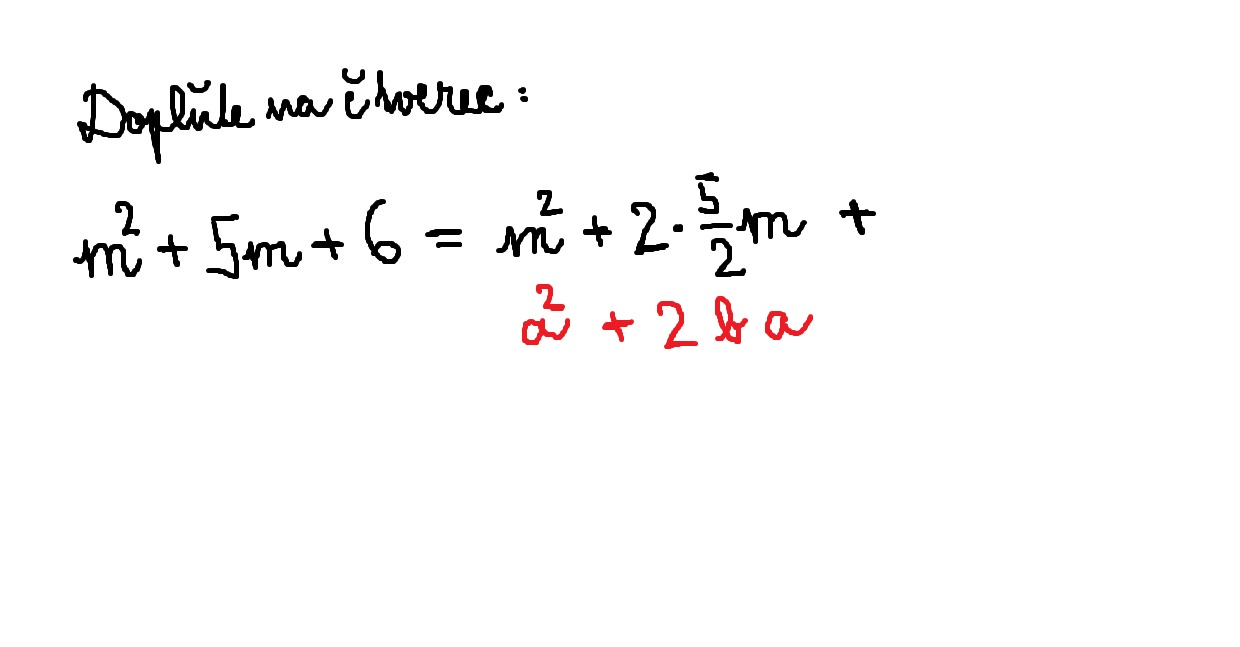 Doplňte na čtverec:
m² + 5m + 6 = m² + 2 · 5/2 m +
a² + 2 b a